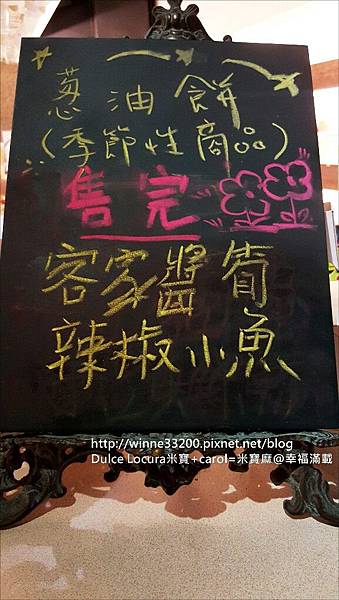 蔥油餅
(季節性商品)
售完
客家醬筍
辣椒小魚
http://winne33200.pixnet.net/blog
Dulce Locura米寶+carol=米寶麻@幸福滿載